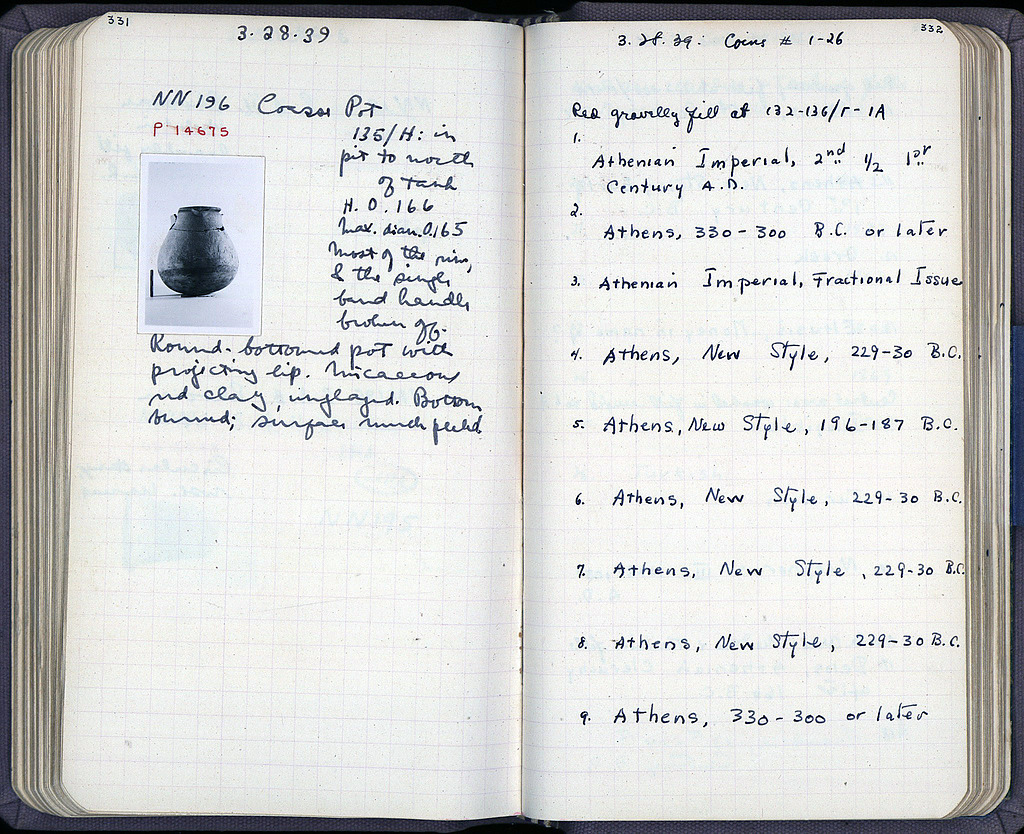 331
3.28.39
NN 196 Coarse Pot
P 14675
135/H: in
pit to north
of tank
H. 0.166
Max. diam. 0.165
Most of the rim,
& the single
band handle
broken off.
Round-bottomed pot with
projecting lip. Micaceous
red clay, unglazed. Bottom
burned; surface much peeled.
332
3.28.39. Coins # 1-26
Red gravelly fill at 132-136/Γ-1A
1.
Athenian Imperial, 2nd 1/2 1st
Century A.D.
2.
Athens, 330-300 B.C. or later
3. Athenian Imperial, Fractional Issue
4. Athens, New Style, 229-30 B.C.
5. Athens, New Style, 196-187 B.C.
6. Athens, New Style, 229-30 B.C.
7. Athens, New Style, 229-30 B.C.
8. Athens, New Style, 229-30 B.C.
9. Athens, 330-300 or later